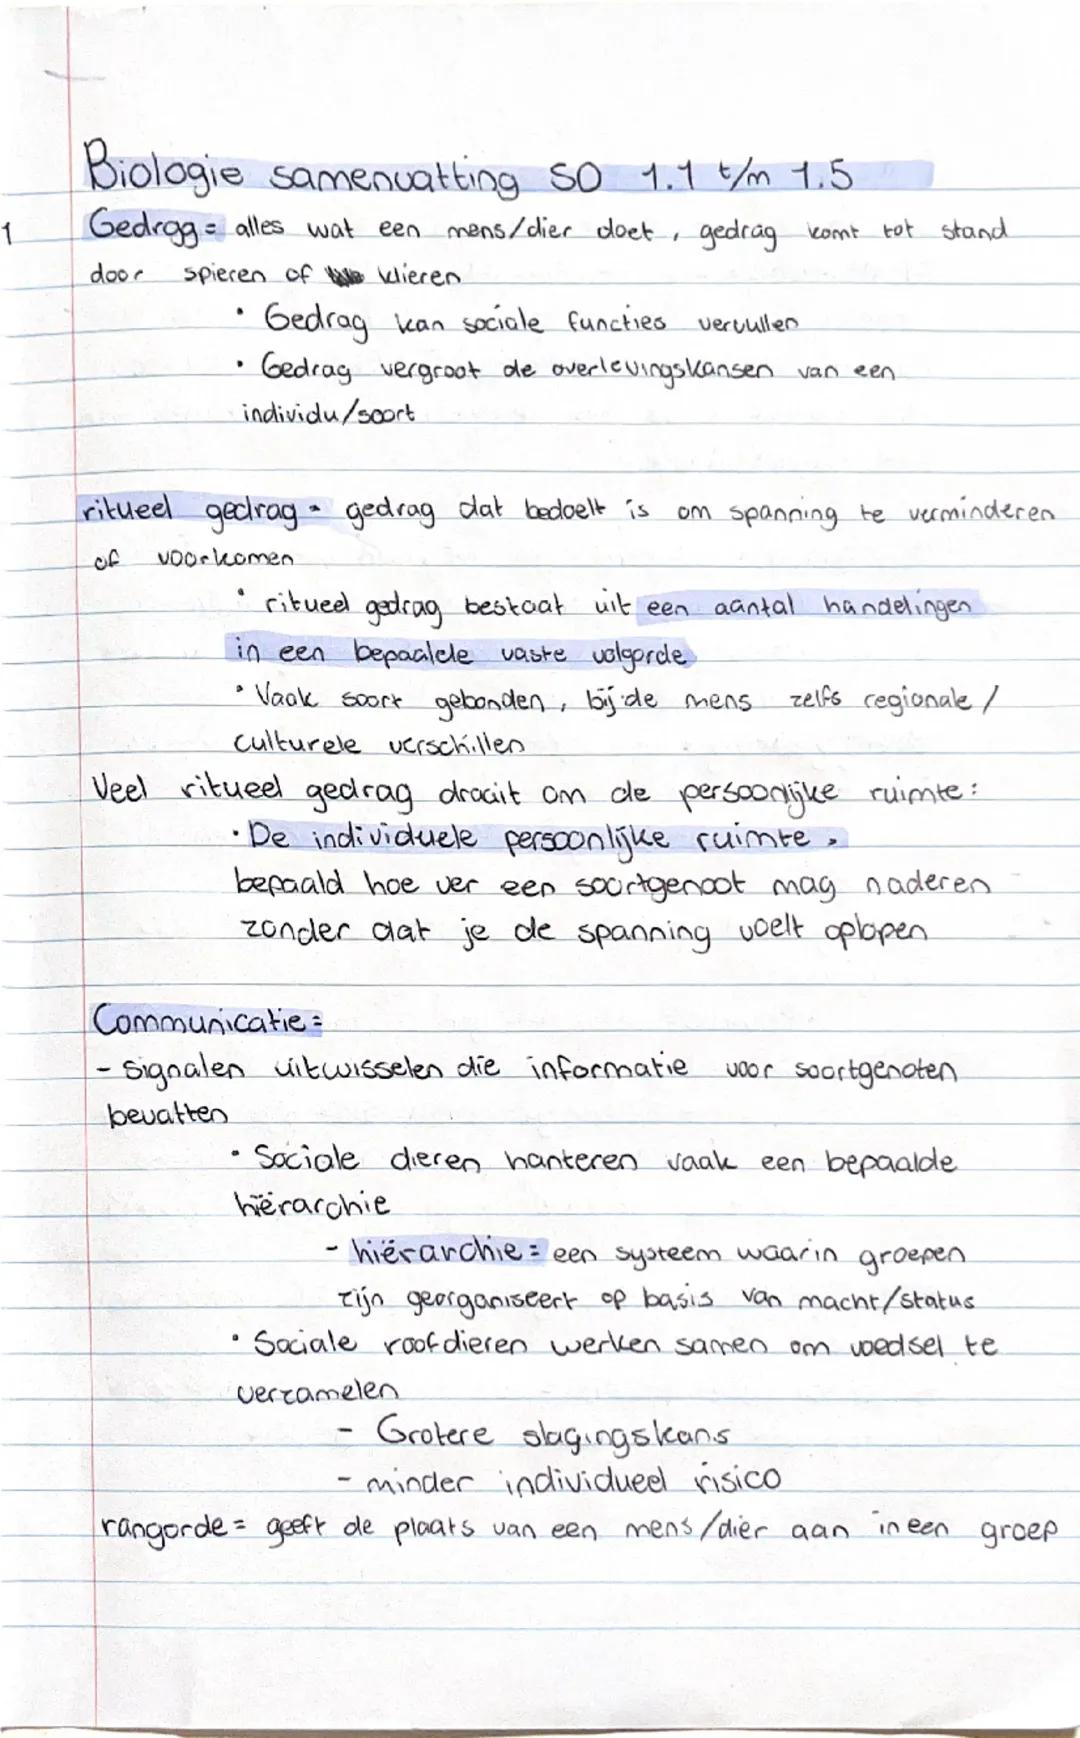 Biologie samenvatting SO 1.1 t/m 1.5
1 Gedrag = alles wat een mens/dier doet, gedrag komt tot stand
door spieren of klieren
• Gedrag kan sociale functies vervullen
• Gedrag vergroot de overlevingskansen van een
individu/soort
ritueel gedrag = gedrag dat bedoelt is om spanning te verminderen
of voorkomen
• ritueel gedrag bestaat uit een aantal handelingen
in een bepaalde vaste volgorde
• Vaak soort gebonden, bij de mens zelfs regionale/
culturele verschillen
Veel ritueel gedrag draait om de persoonlijke ruimte:
• De individuele persoonlijke ruimte =
bepaald hoe ver een soortgenoot mag naderen
zonder dat je de spanning voelt oplopen
Communicatie =
- signalen uitwisselen die informatie voor soortgenoten
bevatten
• Sociale dieren hanteren vaak een bepaalde
hiërarchie
- hiërarchie = een systeem waarin groepen
zijn georganiseert op basis van macht/status
• Sociale roofdieren werken samen om voedsel te
verzamelen
- Grotere slagingskans
- minder individueel risico
rangorde = geeft de plaats van een mens/dier aan in een groep